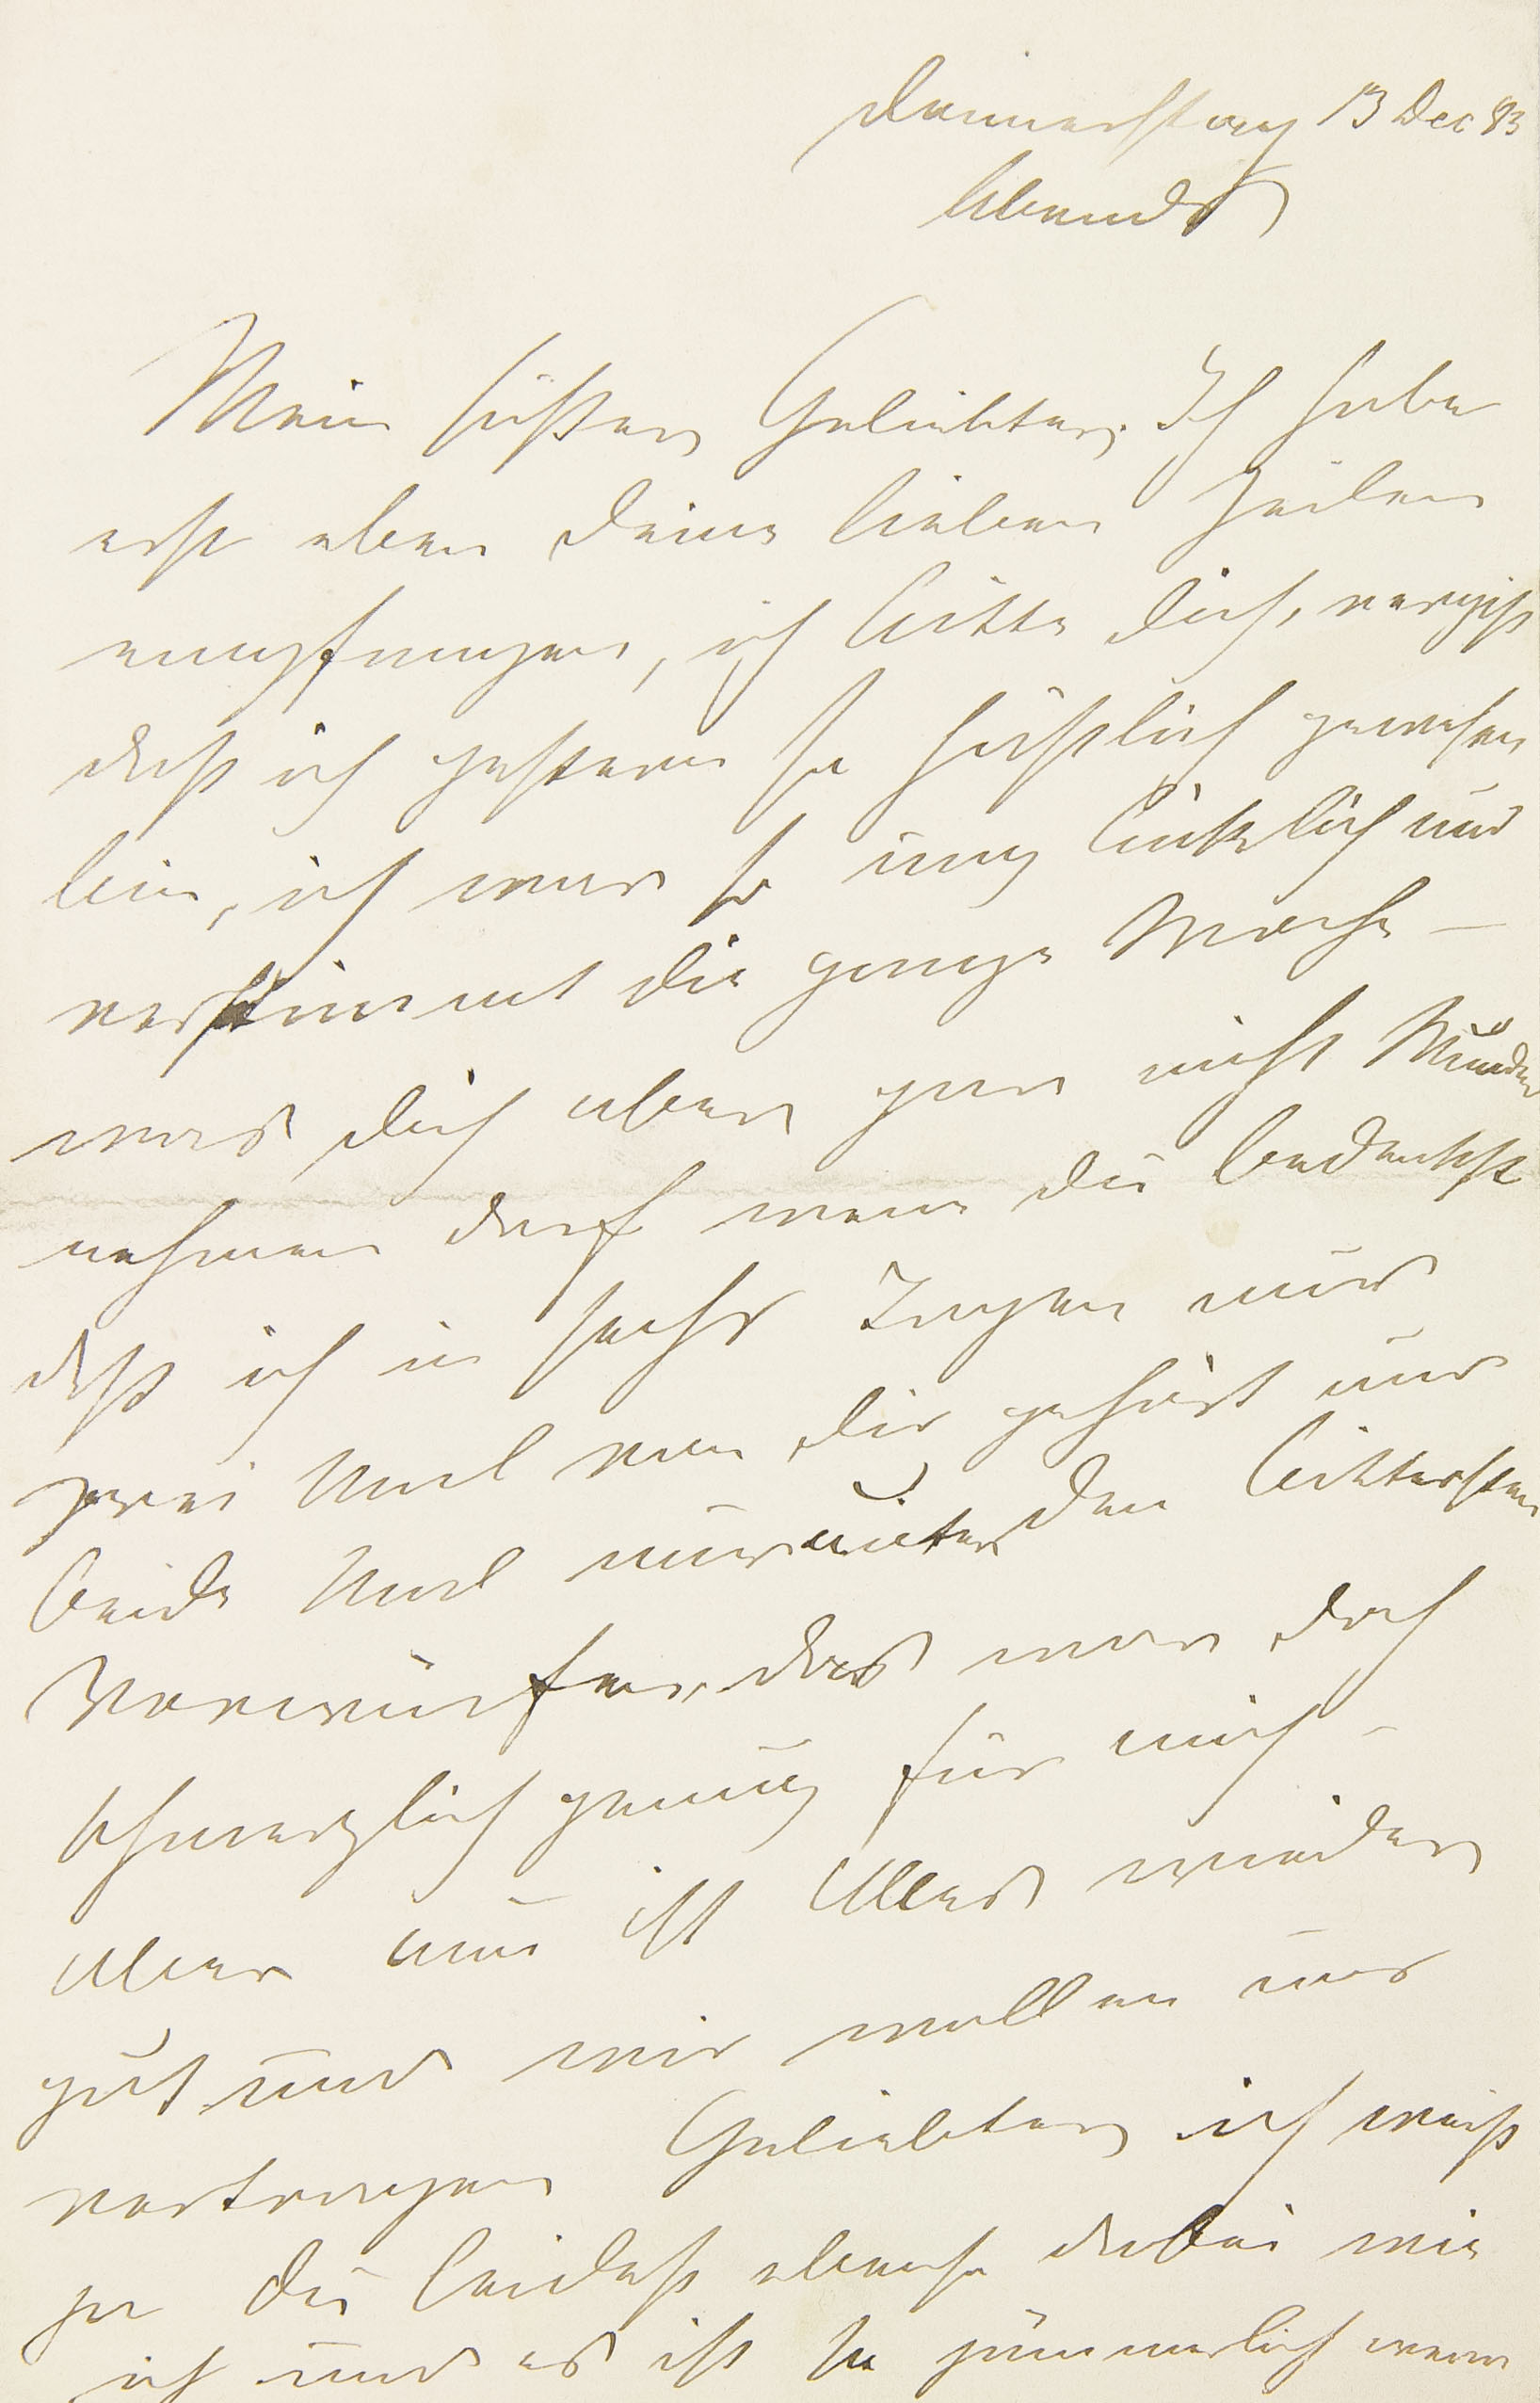 Donnerstag 13 Dec 83
Abends
Mein süßer Geliebter. Ich habe
erst eben deine lieben Zeilen
empfangen, ich bitte dich, vergiß
daß ich gestern so häßlich gewesen
bin, ich war so unglücklich und
verstimmt die ganze Woche —
was dich aber gar nicht Wunder
nehmen darf wenn du bedenkst
daß ich in sechs Tagen nur
zwei Mal von dir gehört und
beide Mal nur unter den bittersten
Vorwürfen, das war doch
schmerzlich genug für mich –
Aber nun ist Alles wieder
gut und wir wollen uns
vertragen Geliebter, ich weiß
ja du leidest ebenso dabei wie
ich und es ist so jämmerlich wenn